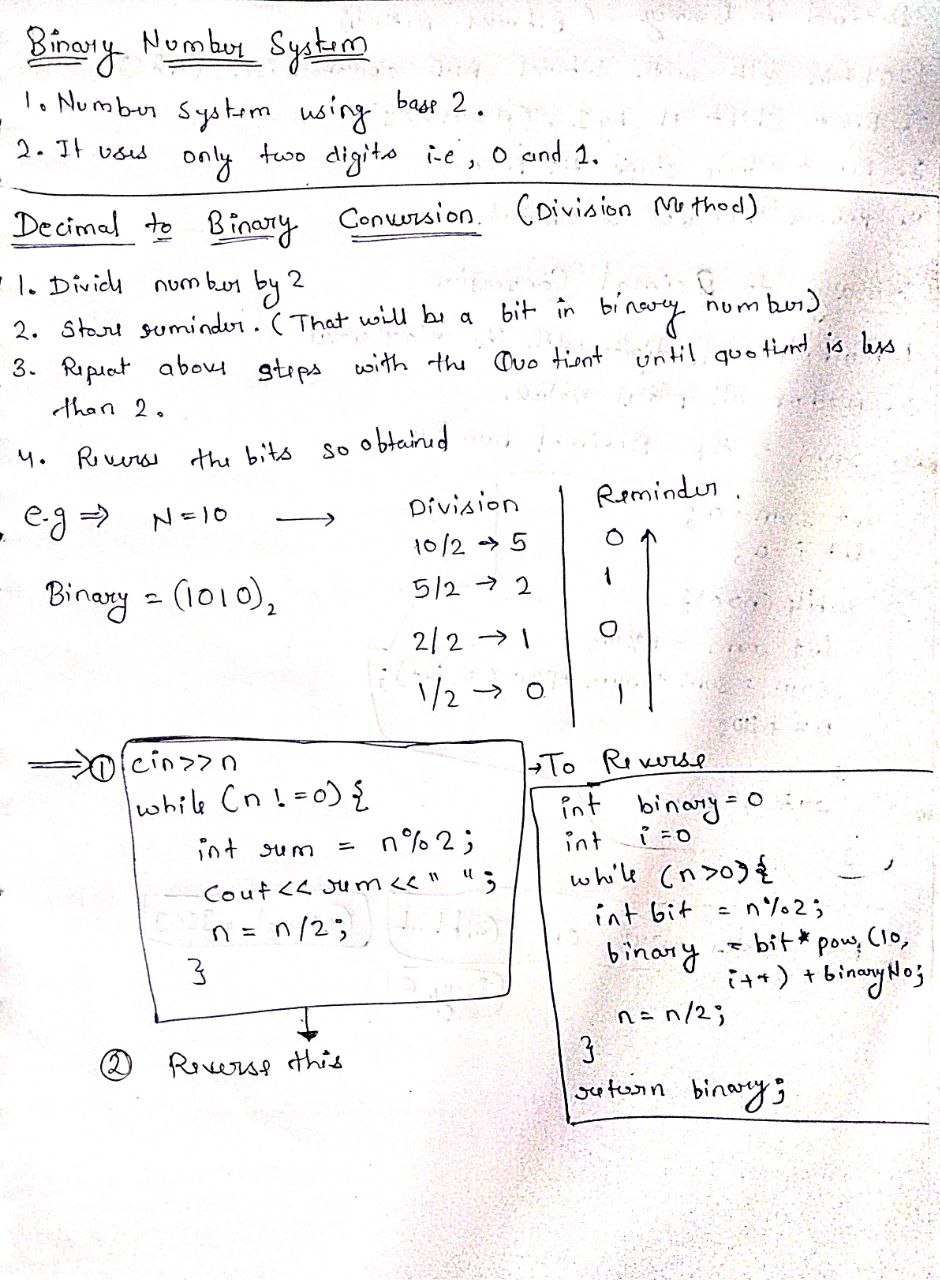 Binary Number System
1. Number system using base 2.
2. It uses only two digits i.e, 0 and 1.
Decimal to Binary Conversion. (Division Method)
1. Divide number by 2
2. Store reminder. (That will be a bit in binary number)
3. Repeat above steps with the Quotient until quotient is less
than 2.
4. Reverse the bits so obtained
e.g ⇒ N=10 → Division | Reminder.
10/2 → 5 | 0
Binary = (1010)₂ 5/2 → 2 | 1
2/2 → 1 | 0
1/2 → 0 | 1
⇒ ① cin>>n
while (n != 0) {
int rem = n%2;
cout << rem << " ";
n = n/2;
}
② Reverse this
→ To Reverse
int binary = 0
int i = 0
while (n>0) {
int bit = n%2;
binary = bit * pow, (10,
i++) + binaryNo;
n = n/2;
}
return binary;